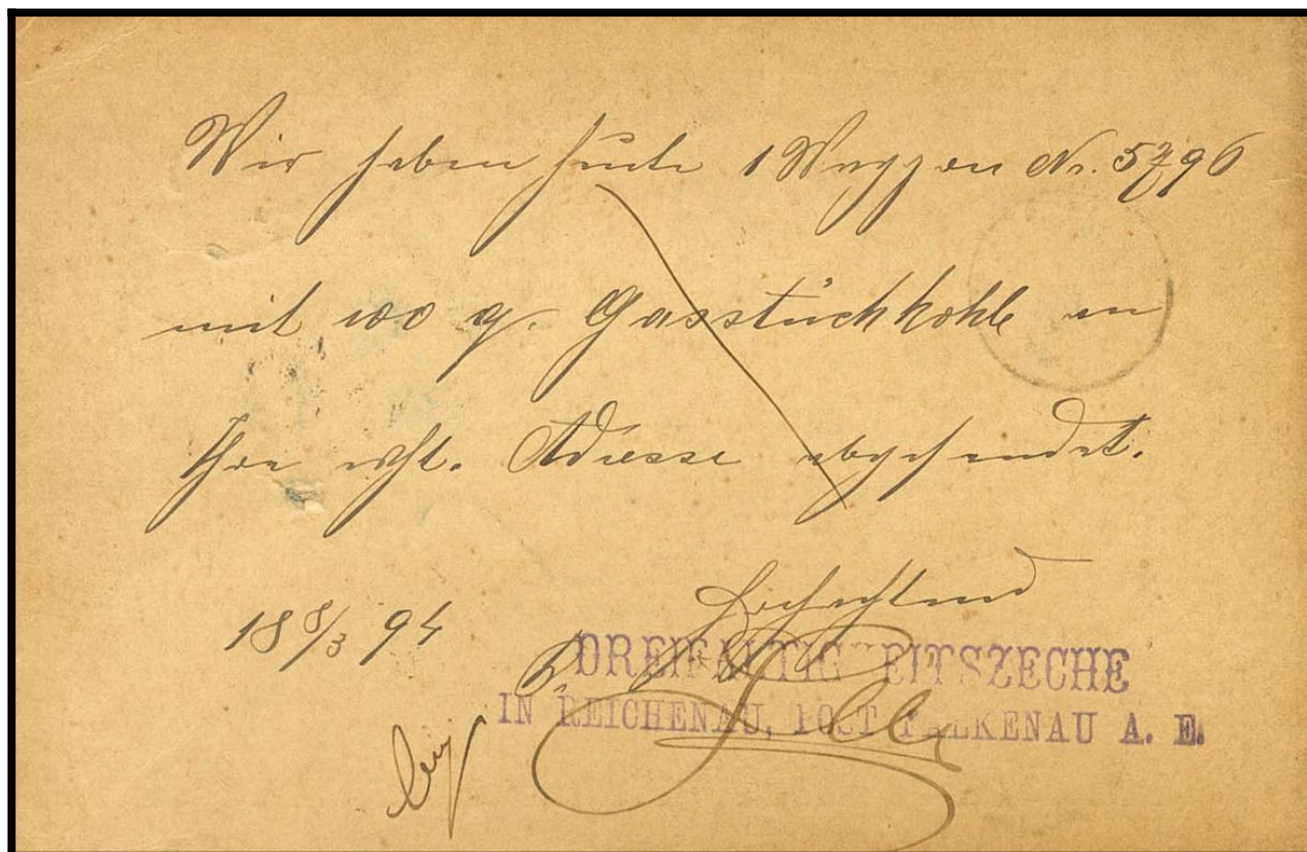 Wir haben heute 1 Waggon No. 5796
mit 100 q. Gasstückkohle an
Ihre wht. Adresse abgesendet.
Hochachtend
18 8/3 94
DREIFALTIGKEITSZECHE
IN REICHENAU, POST FALKENAU A. E.